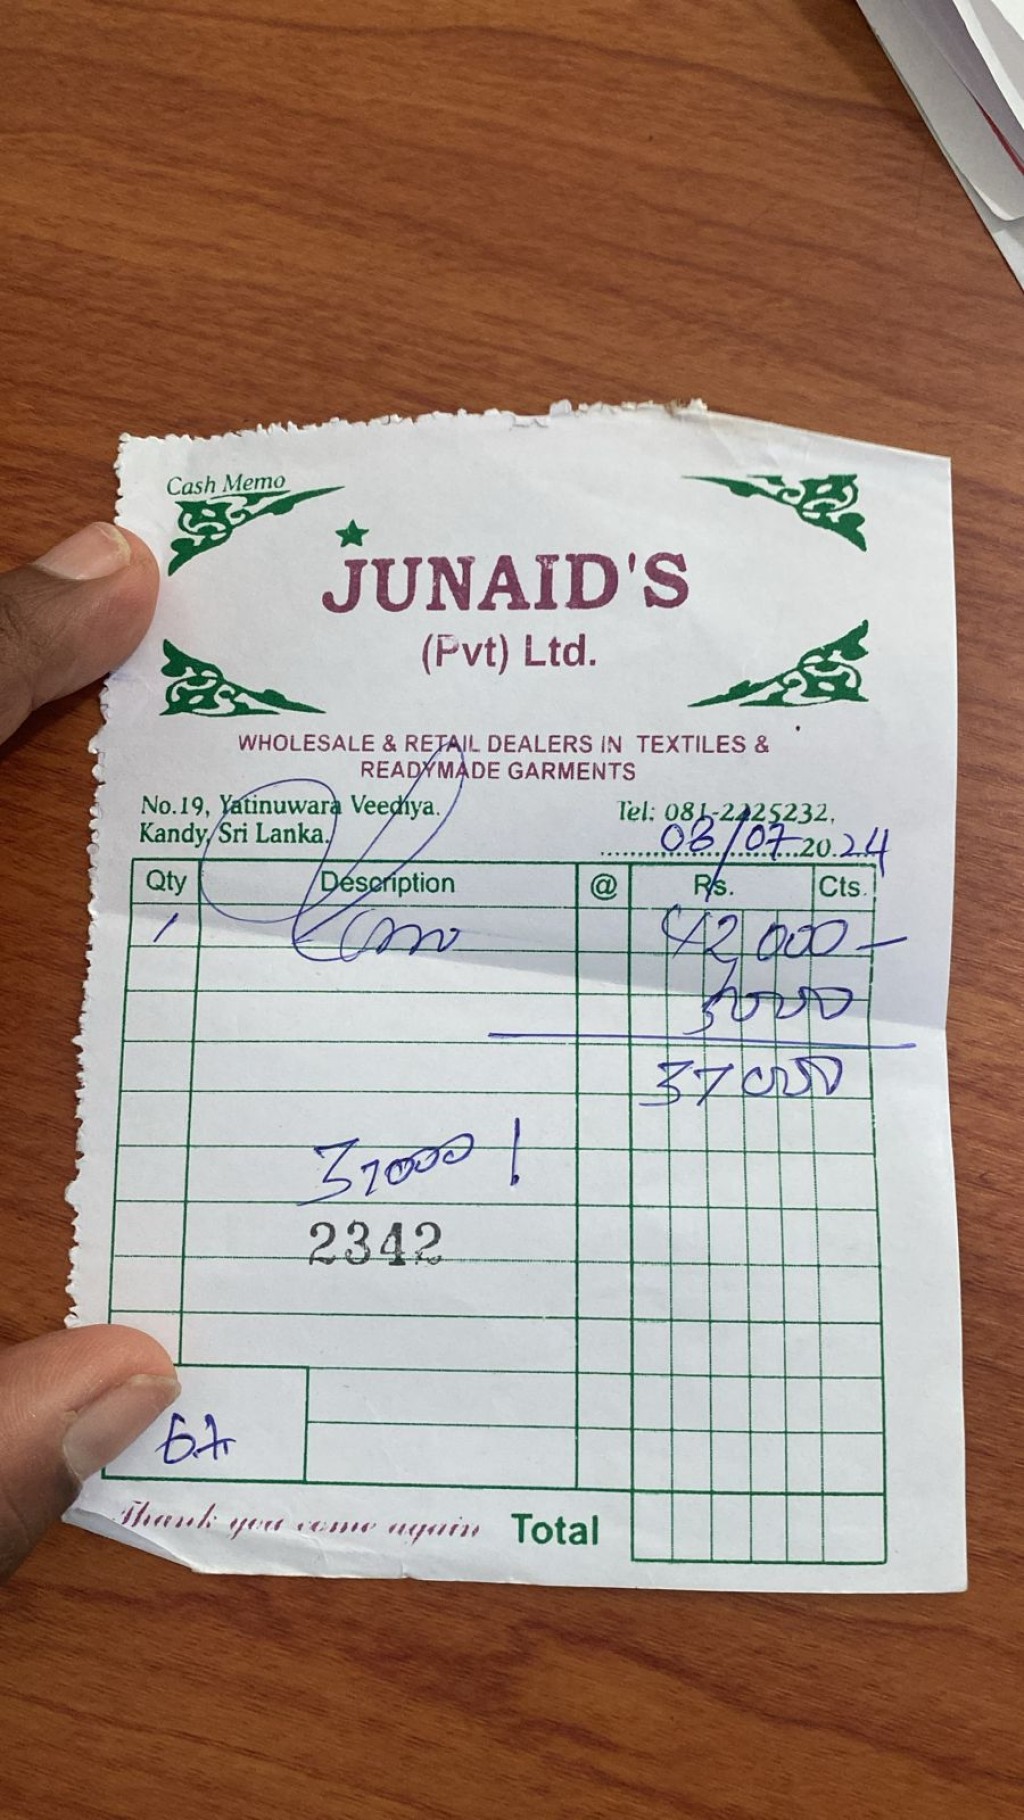 Cash Memo
JUNAID'S
(Pvt) Ltd.
WHOLESALE & RETAIL DEALERS IN TEXTILES &
READYMADE GARMENTS
No.19, Yatinuwara Veediya.
Kandy, Sri Lanka.
Tel: 081-2225232,
03/07 20.24
Qty Description @ Rs. Cts.
1 42,000 -
5000
37000
37000 /
2342
Thank you come again Total